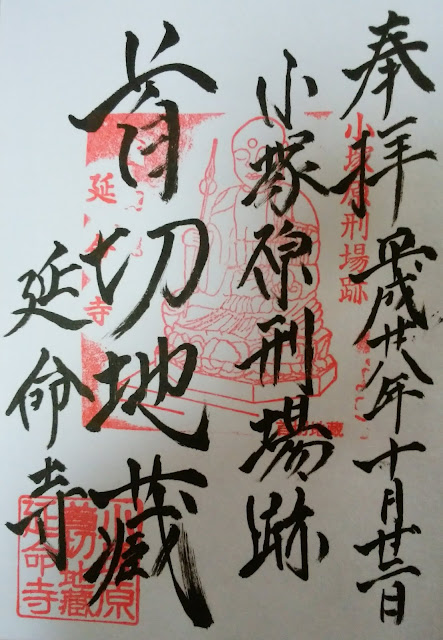 奉拝 平成廿八年十月
小塚原刑場跡
首切地蔵
延命寺
小塚原刑場跡
延命寺
小塚原
首切地蔵
延命寺